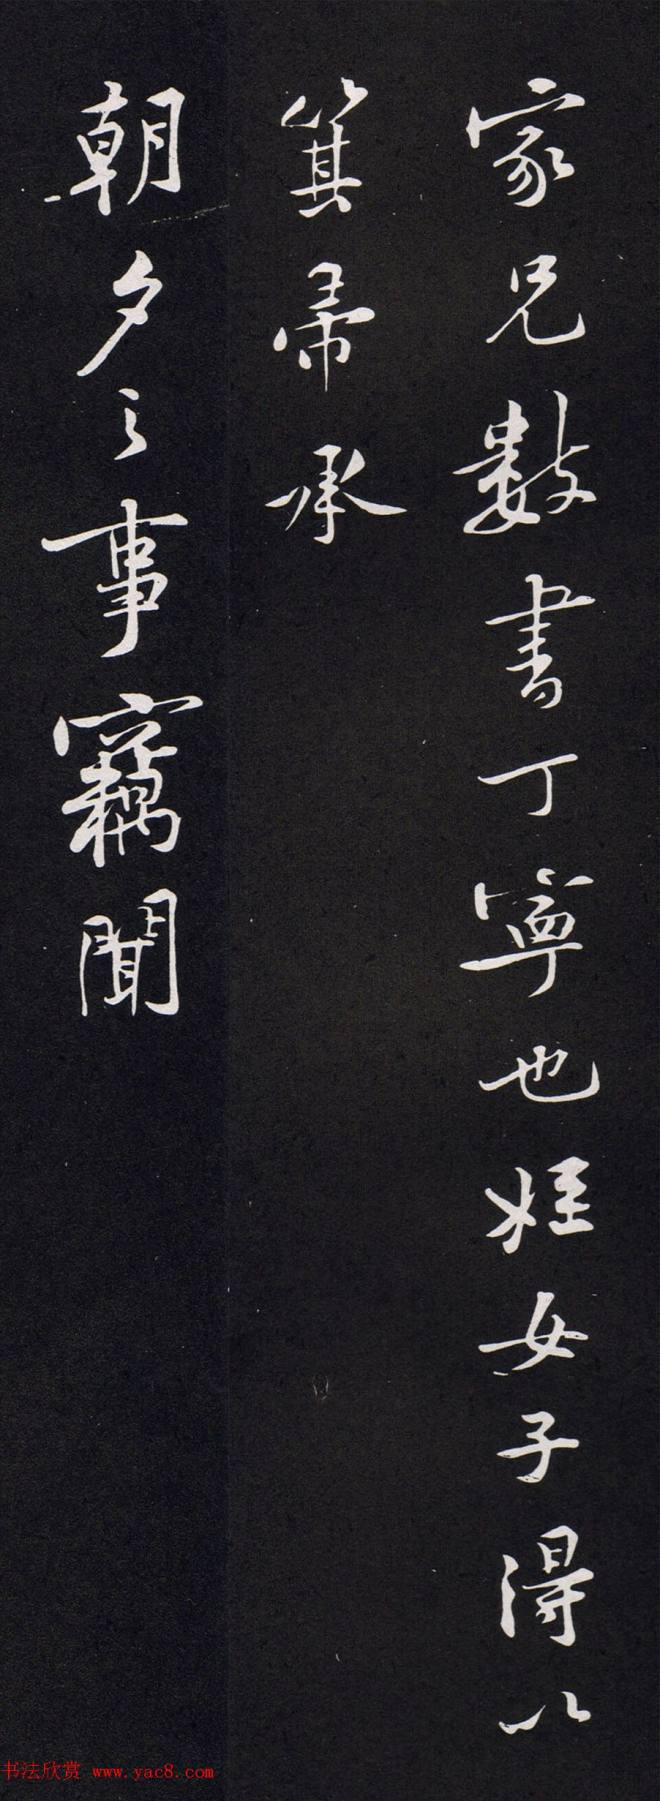 家兄數書丁寧也姪女子得以
箕帚承
朝夕之事竊聞
书法欣赏 www.yac8.com